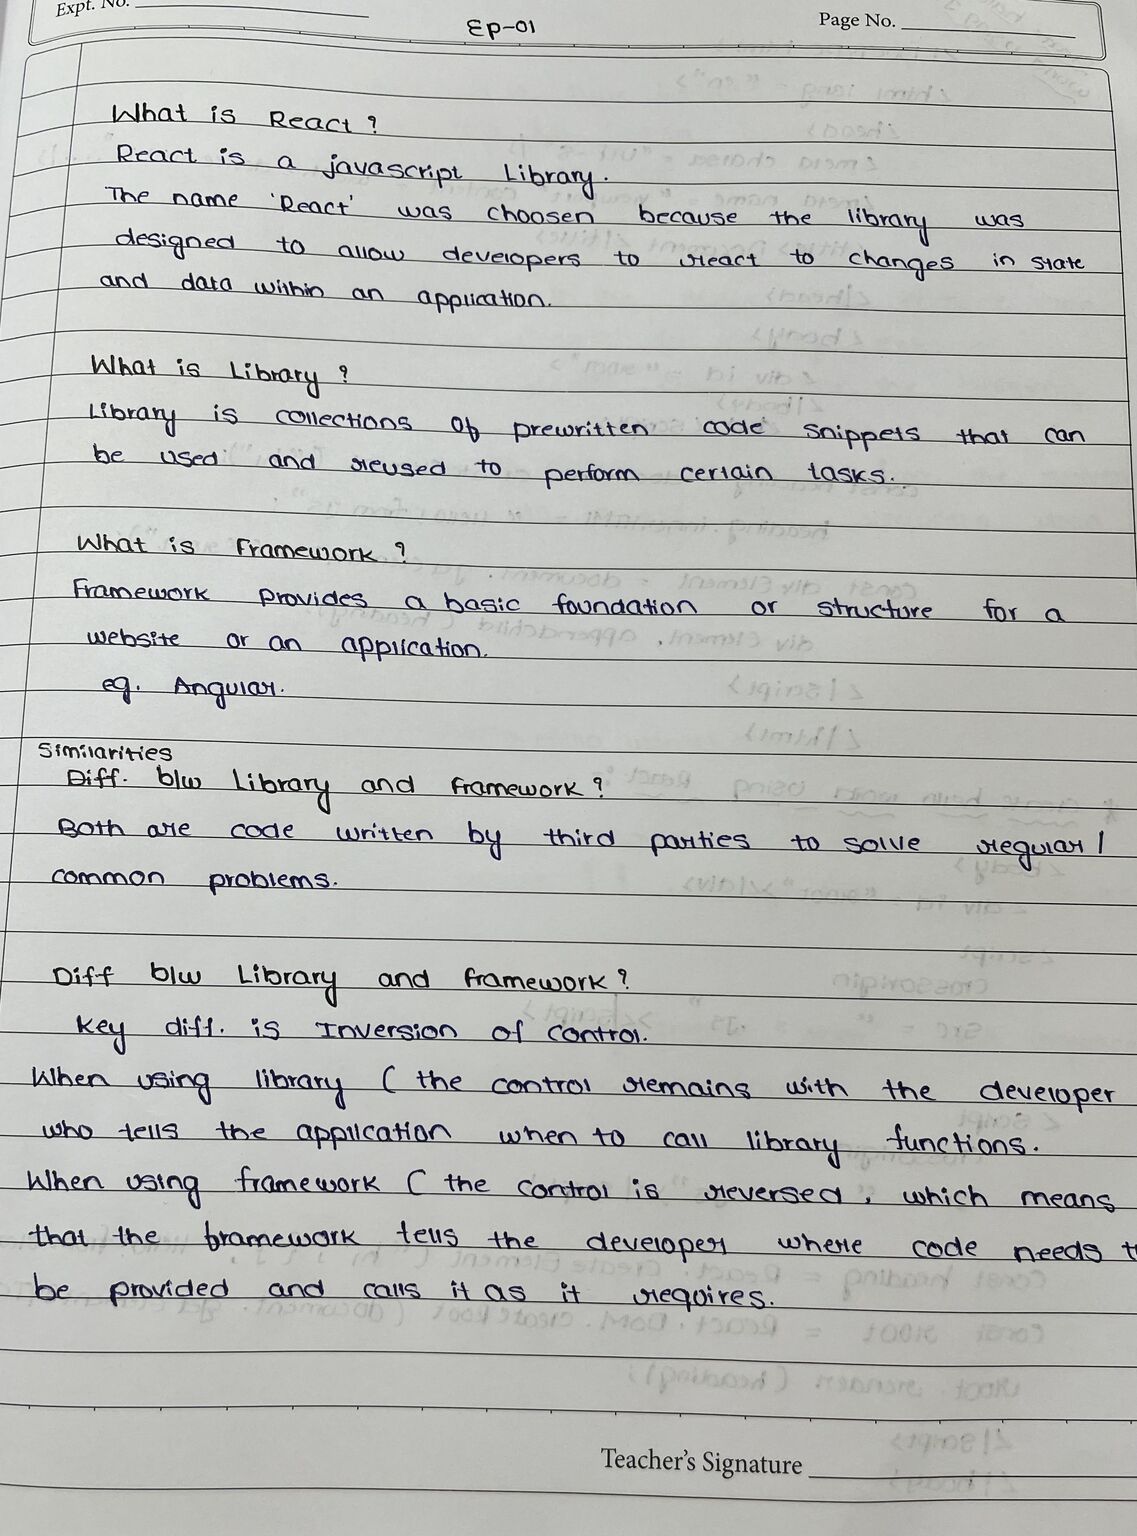 Expt. No.
Ep-01
Page No.
What is React?
React is a javascript Library.
The name 'React' was choosen because the library was
designed to allow developers to react to changes in state
and data within an application.
What is Library?
Library is collections of prewritten code snippets that can
be used and reused to perform certain tasks.
What is Framework?
Framework provides a basic foundation or structure for a
website or an application.
eg. Angular.
Similarities
Diff. b/w Library and framework?
Both are code written by third parties to solve regular /
common problems.
Diff b/w Library and framework?
Key diff. is Inversion of control.
When using library ( the control remains with the developer
who tells the application when to call library functions.
When using framework ( the control is reversed, which means
that the framework tells the developer where code needs t
be provided and calls it as it requires.
Teacher's Signature